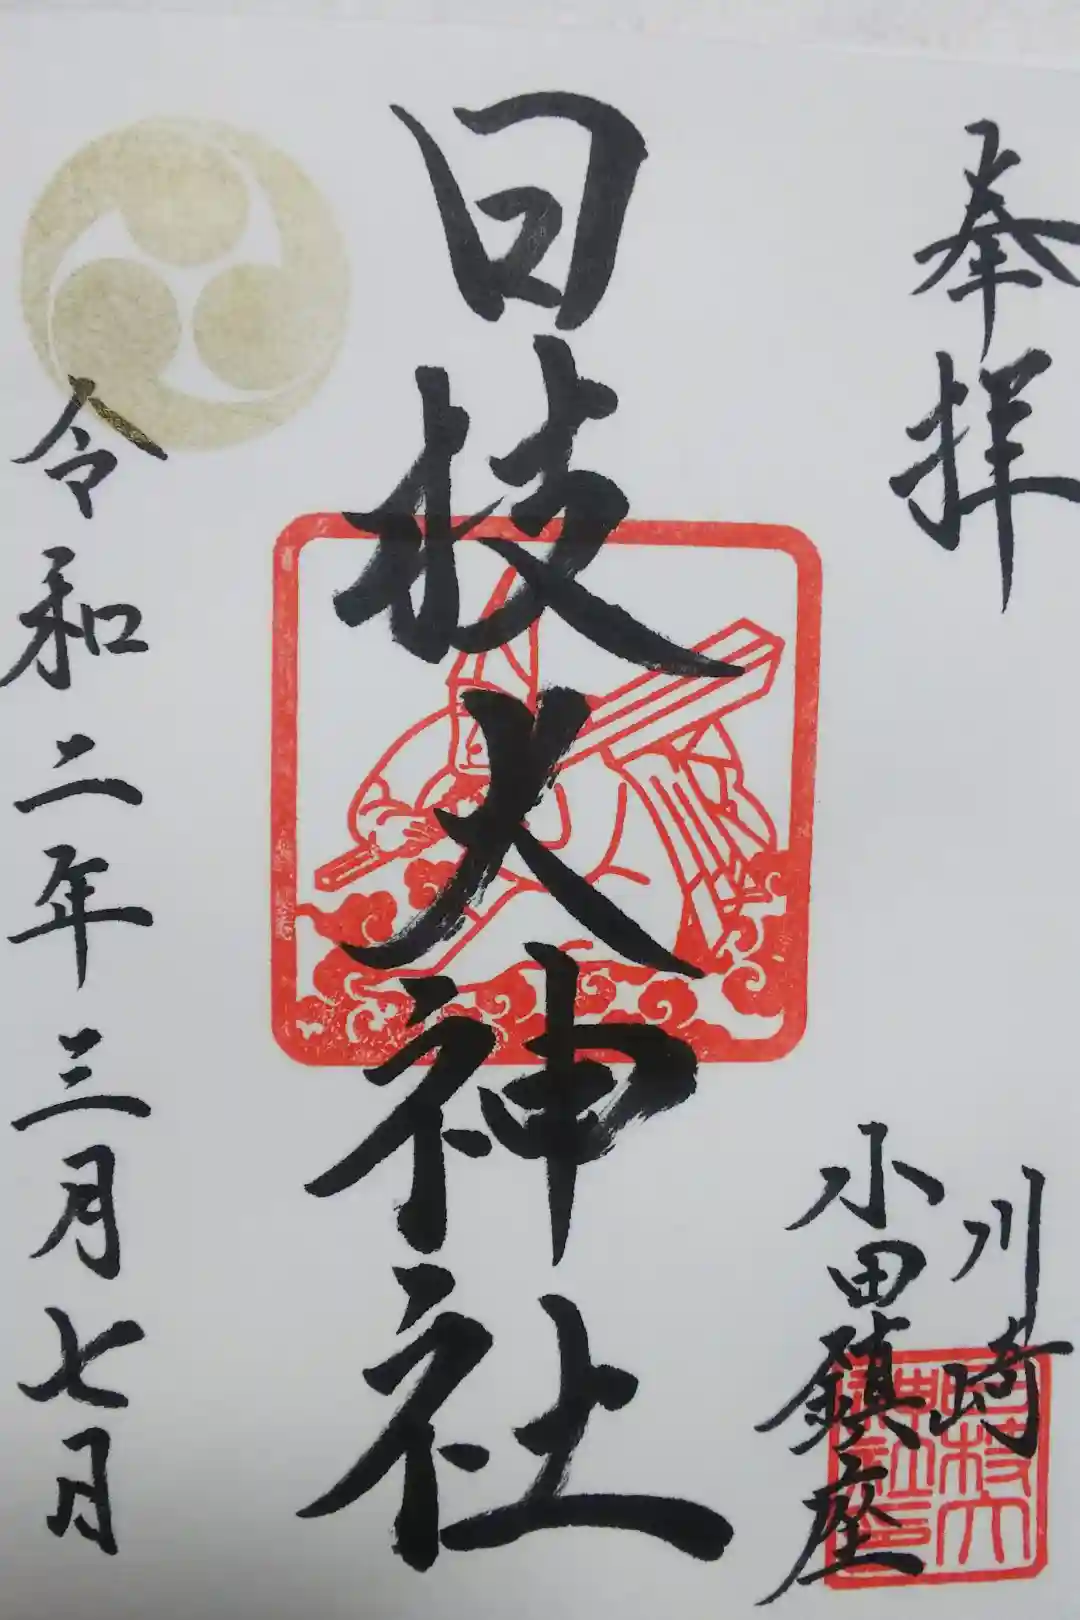 奉拝
川崎
小田鎮座
日枝大神社
令和二年三月七日